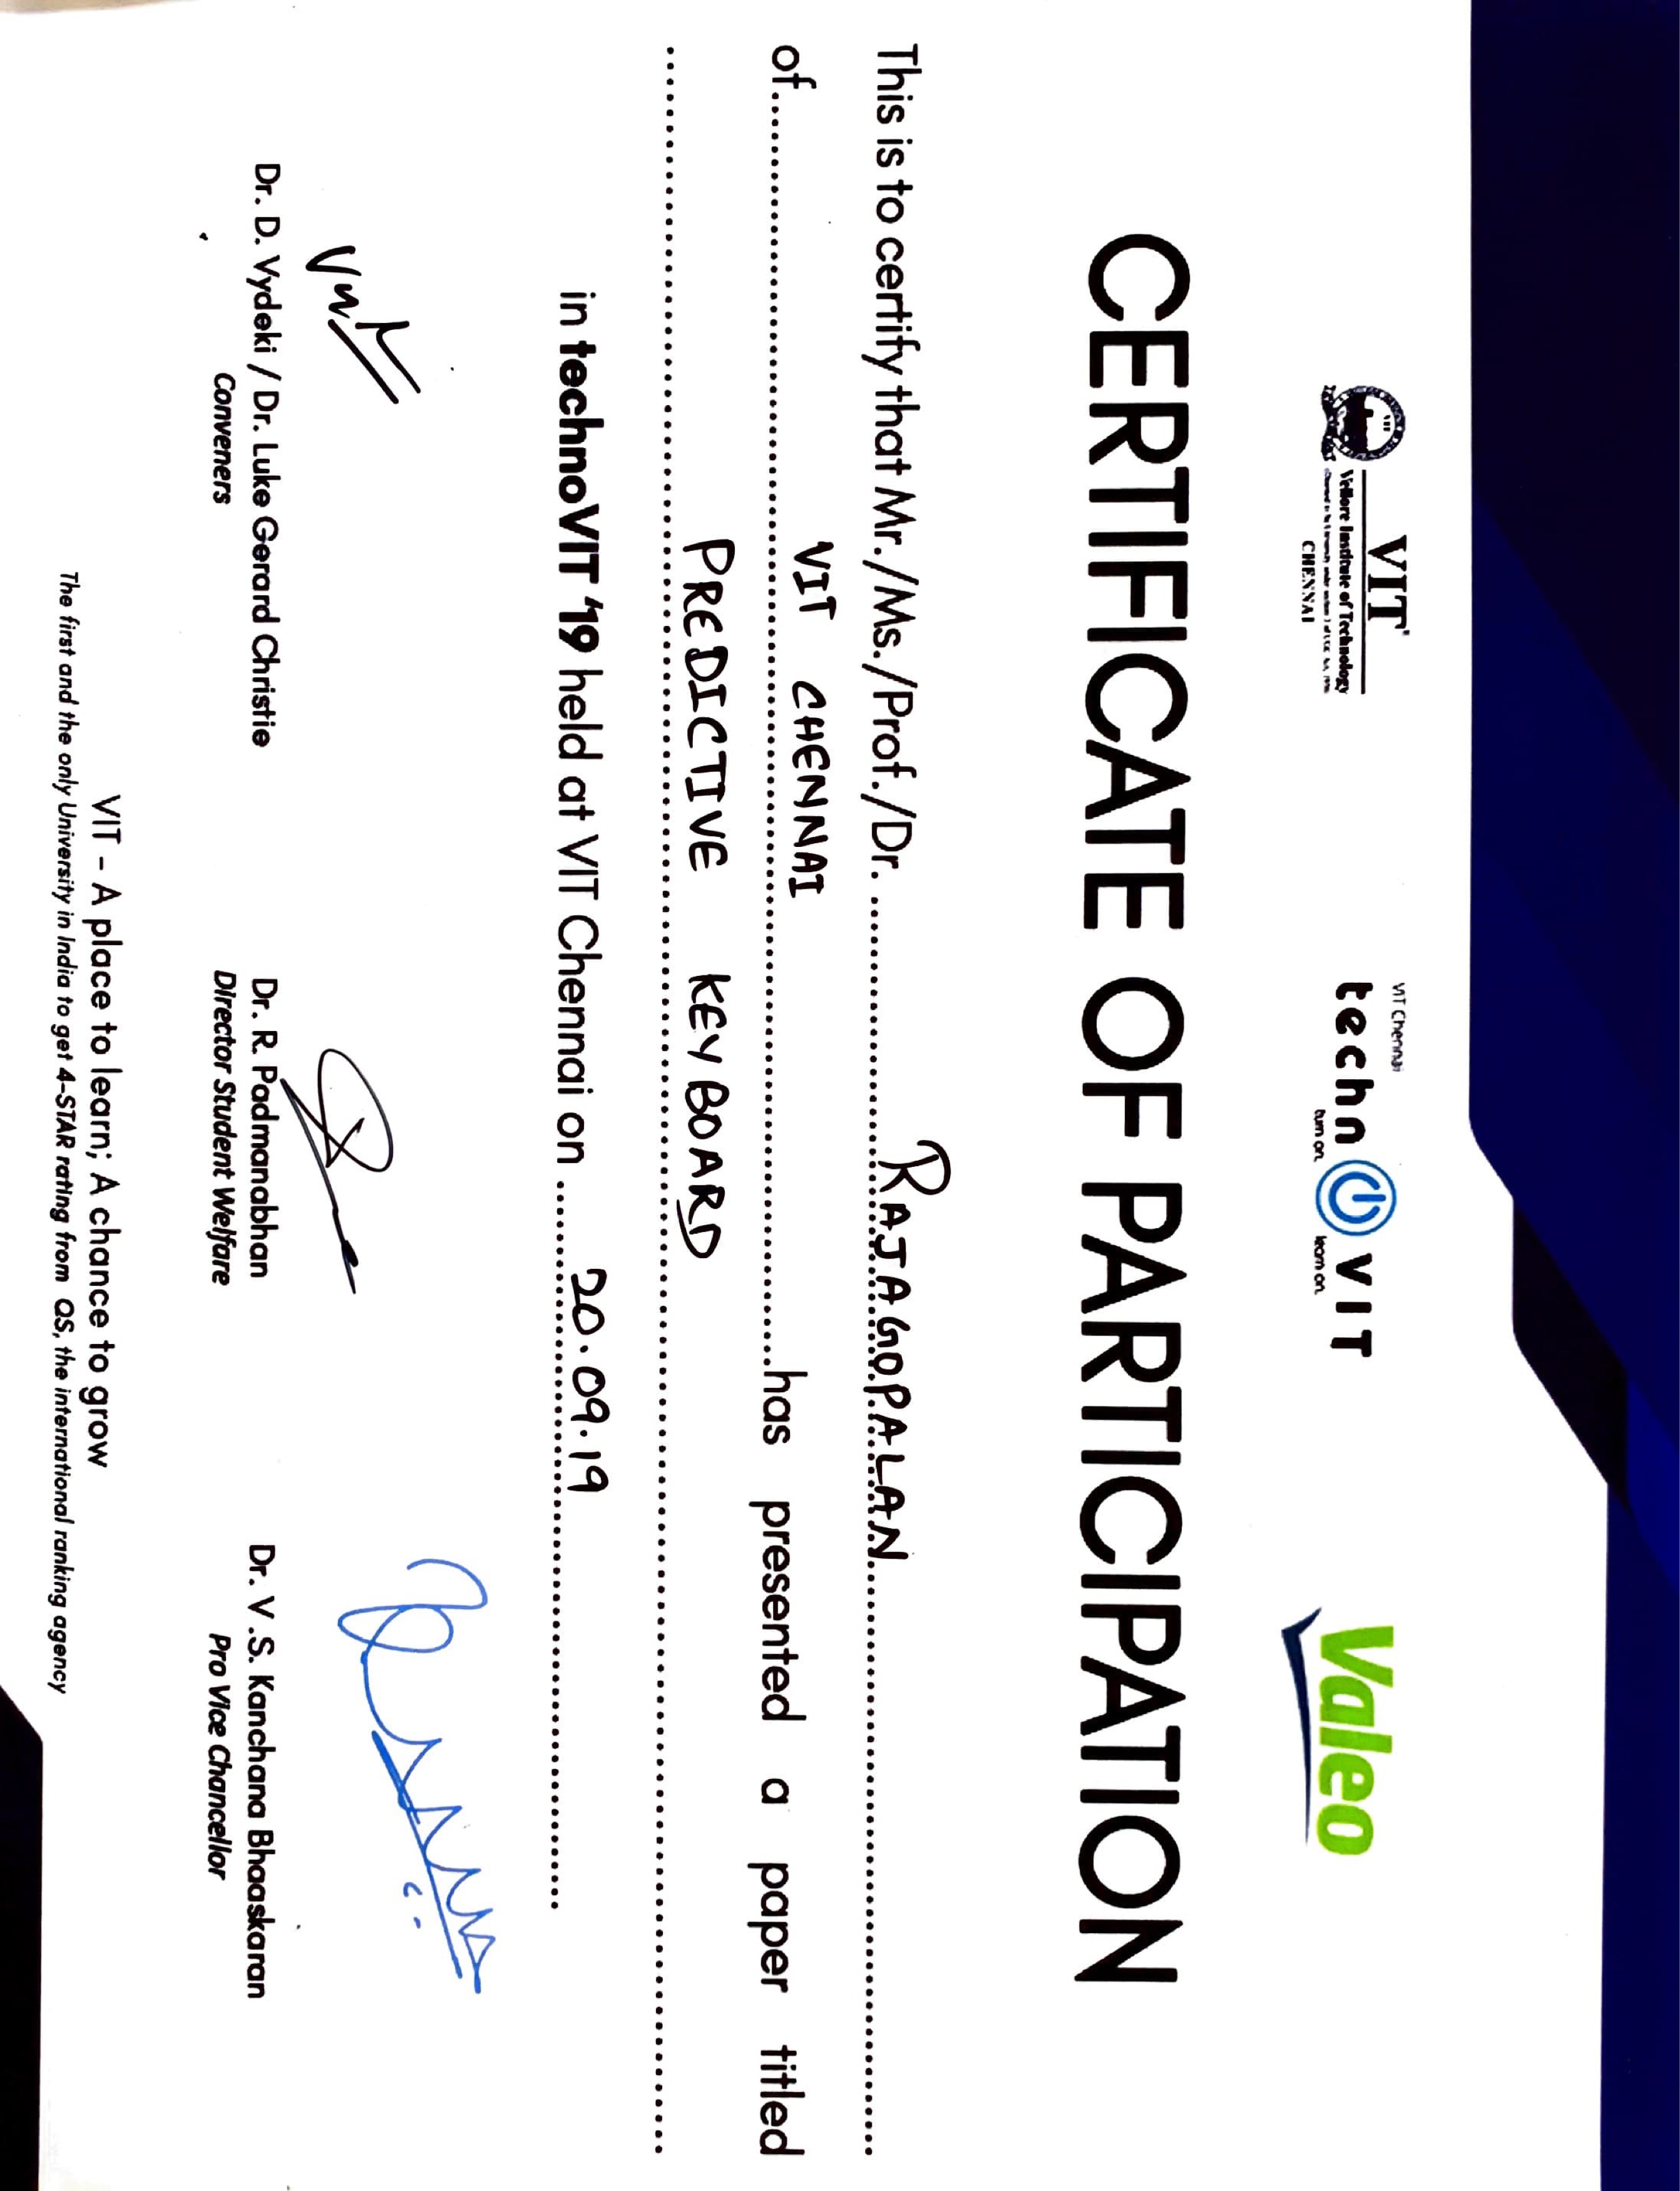 VIT
Vellore Institute of Technology
CHENNAI
VIT Chennai
techn VIT
turn on. learn on.
Valeo
CERTIFICATE OF PARTICIPATION
This is to certify that Mr./Ms./Prof./Dr. RAJAGOPALAN
of VIT CHENNAI has presented a paper titled
PREDICTIVE KEYBOARD
in technoVIT '19 held at VIT Chennai on 20.09.19
Dr. D. Vydeki / Dr. Luke Gerard Christie
Conveners
Dr. R. Padmanabhan
Director Student Welfare
Dr. V .S. Kanchana Bhaaskaran
Pro Vice Chancellor
VIT - A place to learn; A chance to grow
The first and the only University in India to get 4-STAR rating from QS, the international ranking agency